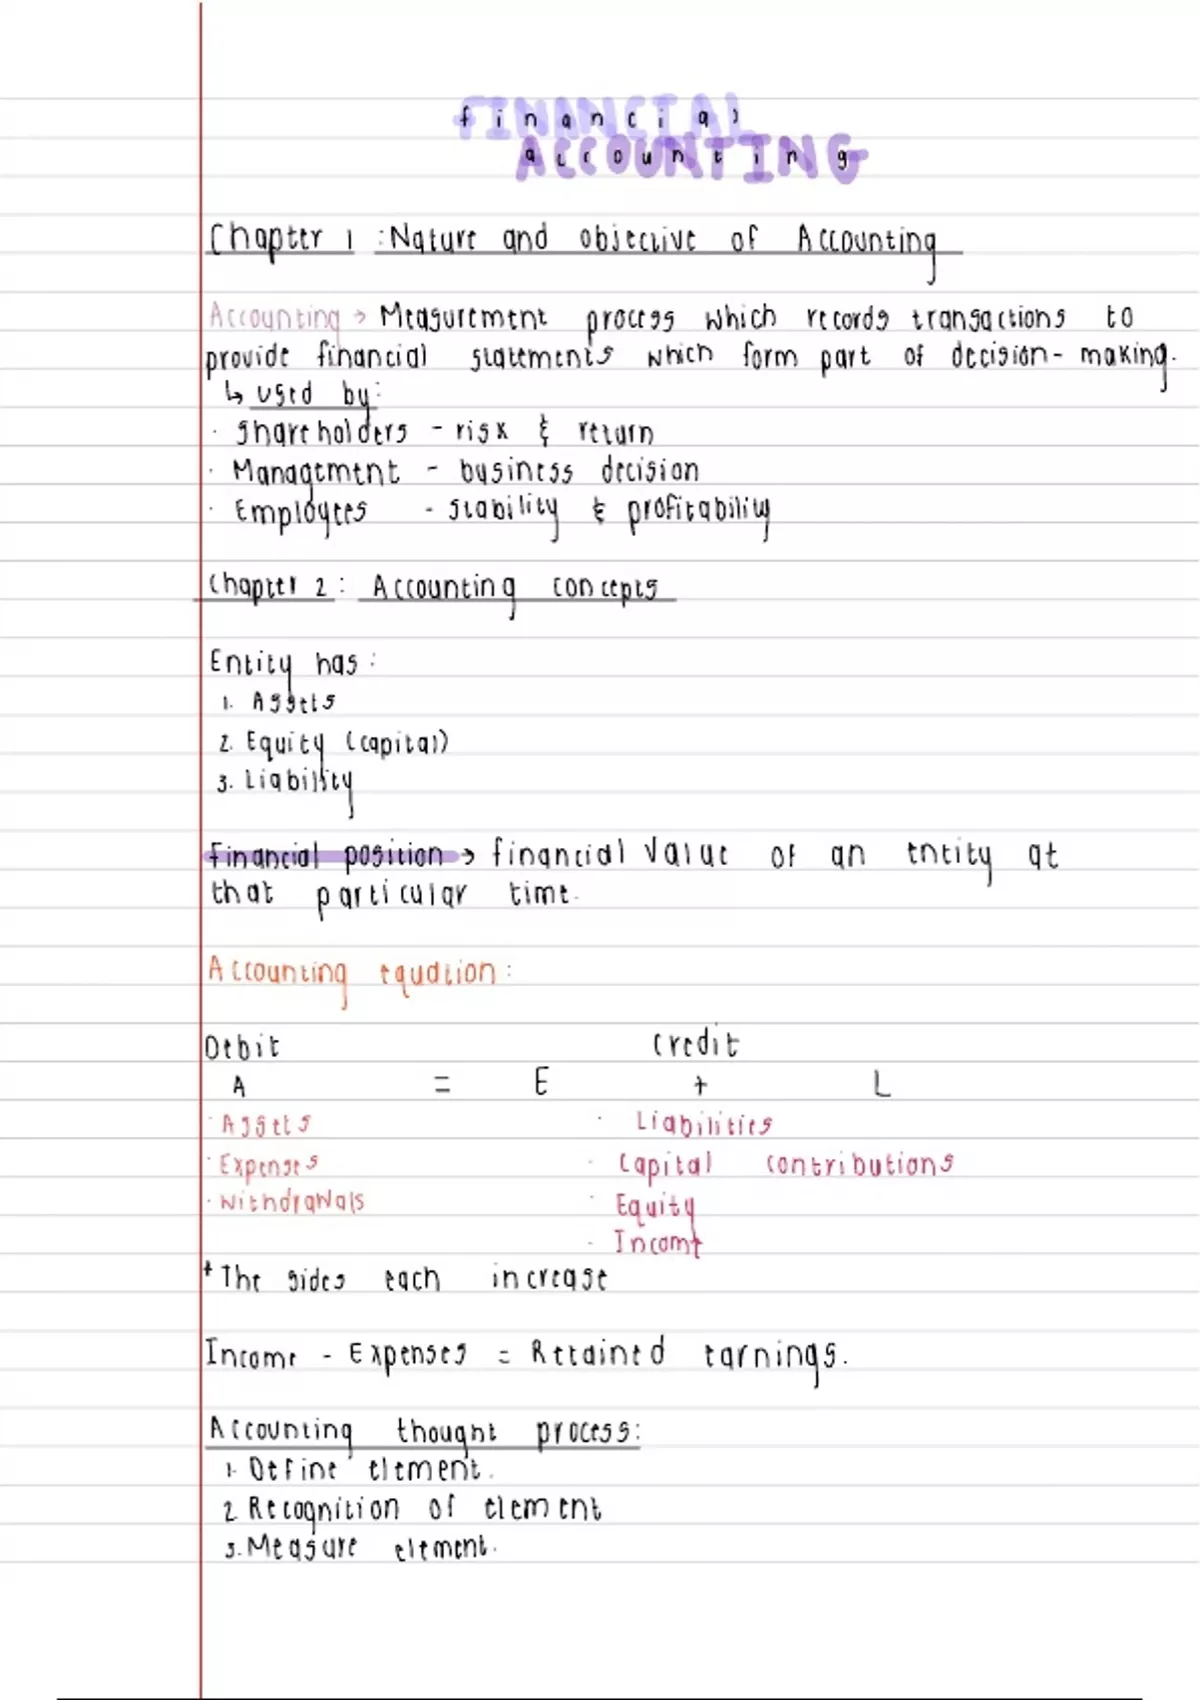 financial
accounting
Chapter 1 : Nature and objective of Accounting
Accounting → Measurement process which records transactions to
provide financial statements which form part of decision-making.
↳ used by:
· Shareholders - risk & return
· Management - business decision
· Employees - stability & profitability
Chapter 2 : Accounting concepts
Entity has :
1. Assets
2. Equity (capital)
3. Liability
Financial position → financial value of an entity at
that particular time.
Accounting equation :
Debit Credit
A = E + L
· Assets · Liabilities
· Expenses · Capital contributions
· Withdrawals · Equity
· Income
* The sides each increase
Income - Expenses = Retained earnings.
Accounting thought process:
1. Define element.
2. Recognition of element
3. Measure element.